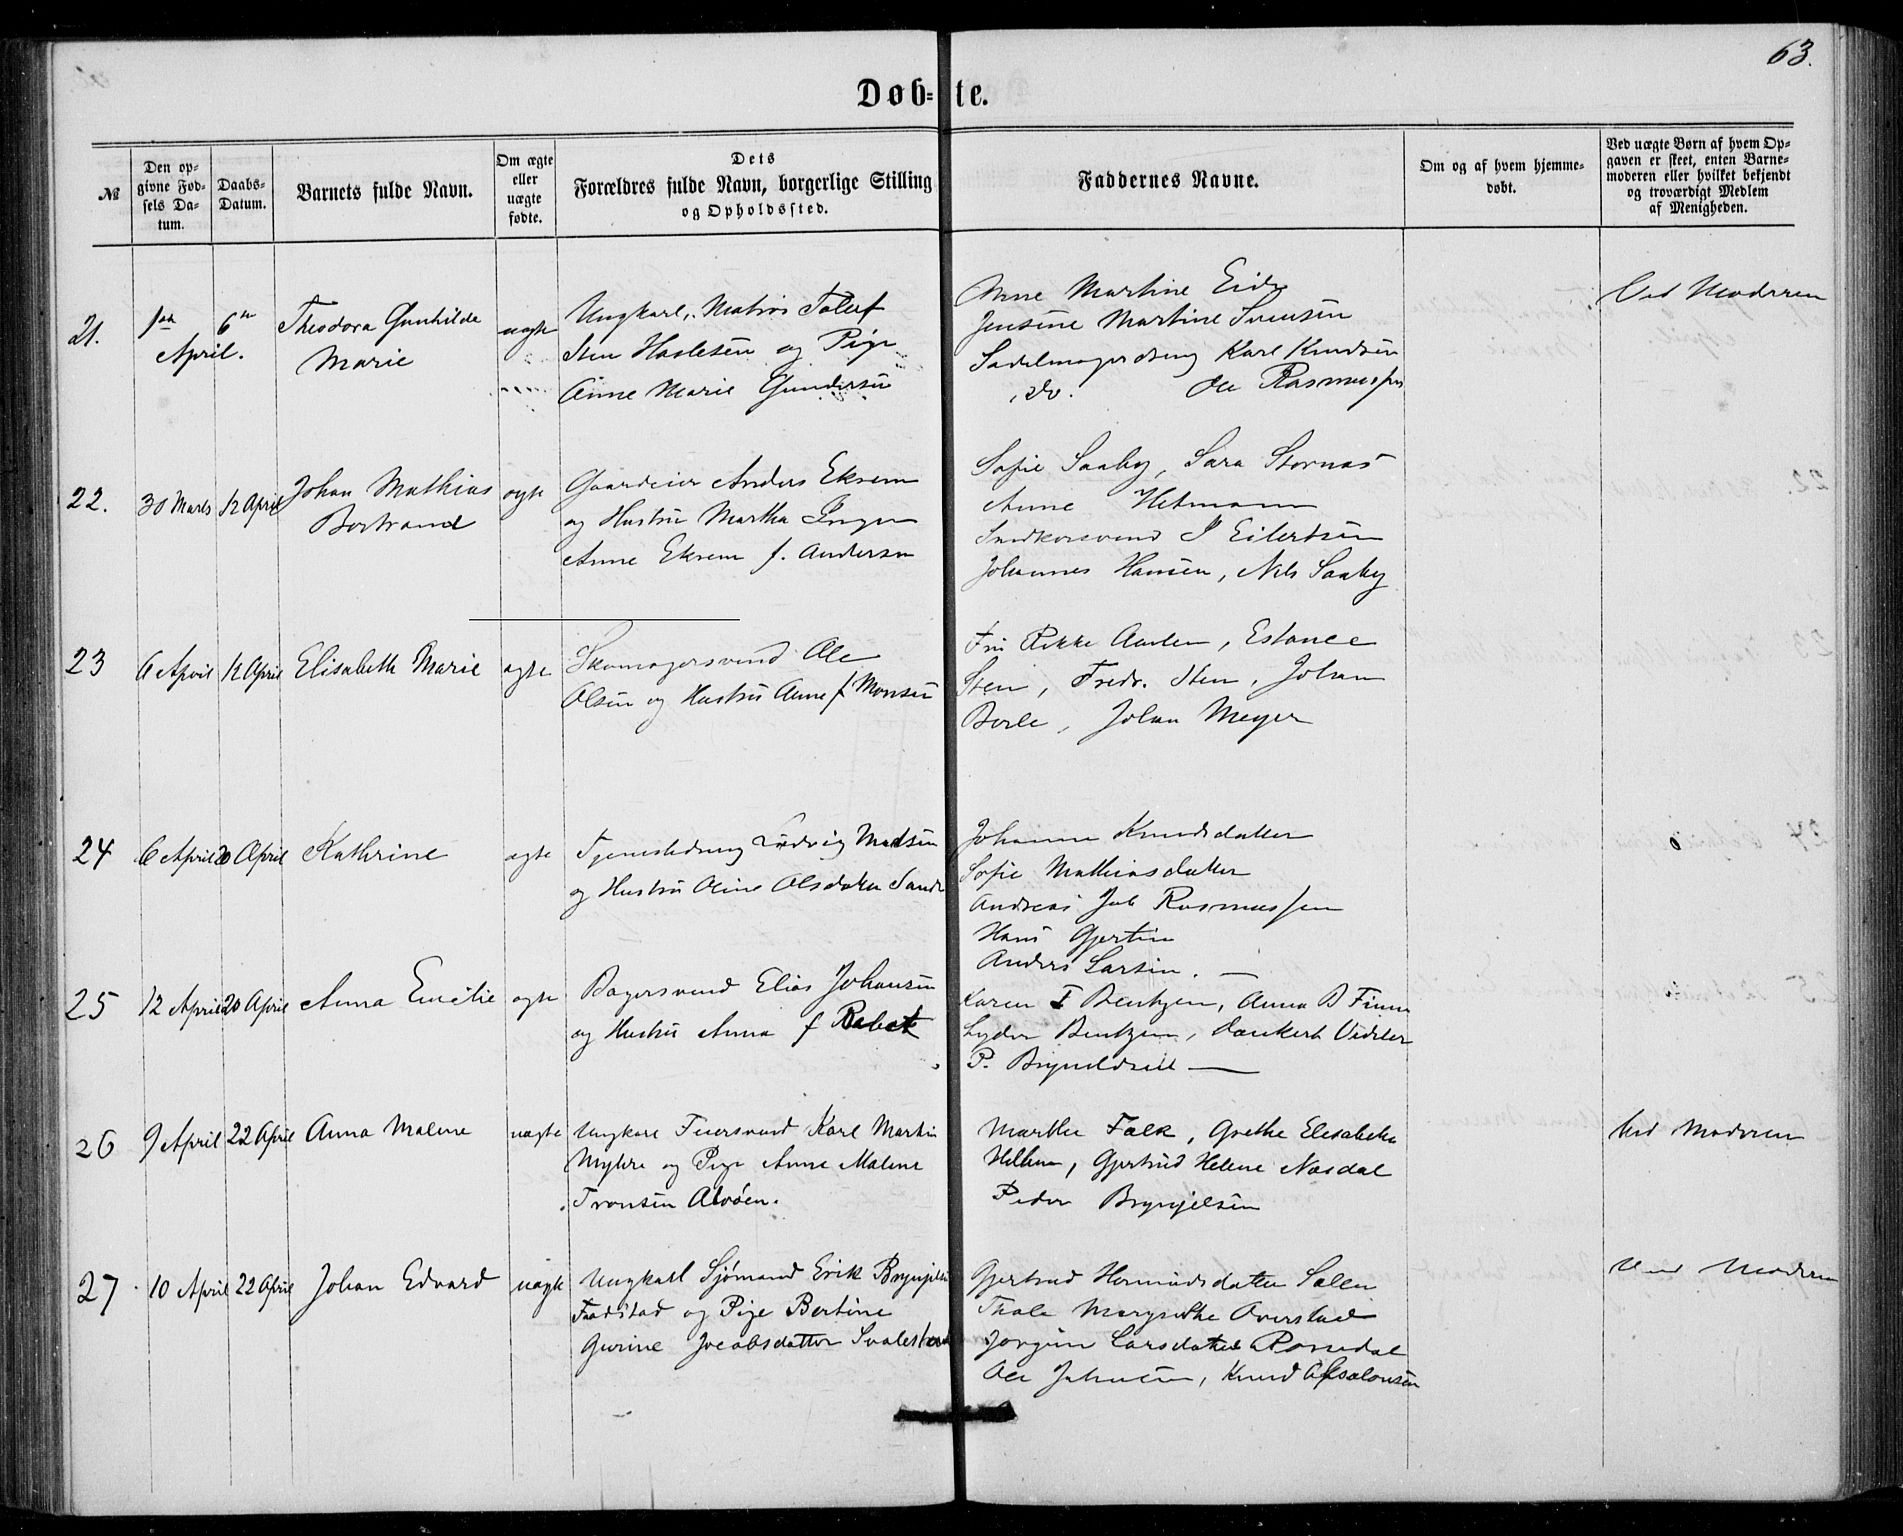 63.
Døb-te.
№
Den op-
givne Fød-
sels Da-
tum.
Daabs-
Datum.
Barnets fulde Navn.
Om ægte
eller
uægte
fødte.
Dets
Forældres fulde Navn, borgerlige Stilling
og Opholdssted.
Faddernes Navne.
Om og af hvem hjemme-
døbt.
Ved uægte Børn af hvem Op-
gaven er skeet, enten Barne-
moderen eller hvilket bekjendt
og troværdigt Medlem
af Menigheden.
21.
1ste
April.
6te
Theodora Gunhilde
Marie
uægte
Ungkarl, Matros Tolluf
Sten Haslesen og Pige
Anne Marie Gundersen
Anne Martine Eide
Jensine Martine Svensen
Sadelmagerdreng Karl Knudsen
do. Ole Rasmussen
Ved Moderen
22.
30 Marts
12 April
Johan Mathias
Bertrand
ægte
Gaardeier Anders Ekrem
og Hustru Martha
Anne Ekrem f. Andersen
Sofie Saaby, Sara Stornæs
Anne Hetmann
Snedkersvend J Eilertsen
Johannes Hansen, Nils Saaby
23
6 April
12 April
Elisabeth Marie
ægte
Skomagersvend Ole
Olsen og Hustru Anne f. Monsen
Frü Rikke Estance
Sten, Fredr. Sten, Johan
Johan Meyer
24
6 April
20 April
Kathrine
ægte
Tjenestedreng Ludvig Madsen
og Hustru Oline Olsdatter
Johanne Knudsdatter
Sofie Mathiasdatter
Andreas Jak Rasmussen
Hans
Anders Larsen. —
25
12 April
20 April
Anna Emilie
ægte
Bagersvend Elias Johansen
og Hustru Anna f
Karen F Bentzen, Anna B Finne
Lyder Bentzen, Dankert
P. —
26
9 April
22 April
Anna Malene
uægte
Ungkarl Karl Martin
Myhre og Pige Anne Malene
Tronsen Alvøen.
Marthe Falk, Grethe Elisabeth
Gjertrud Helene Næsdal
Peder Brynjelsen
Ved Moderen
27
10 April
22 April
Johan Edvard
uægte
Ungkarl Sjømand Erik Brynjelsen
og Pige Bertine
Gurine Jocabsdatter
Gjertrud
Thale Margrethe
Jørgine Larsdatter
Ole Knud Absalonsen
Ved Moderen